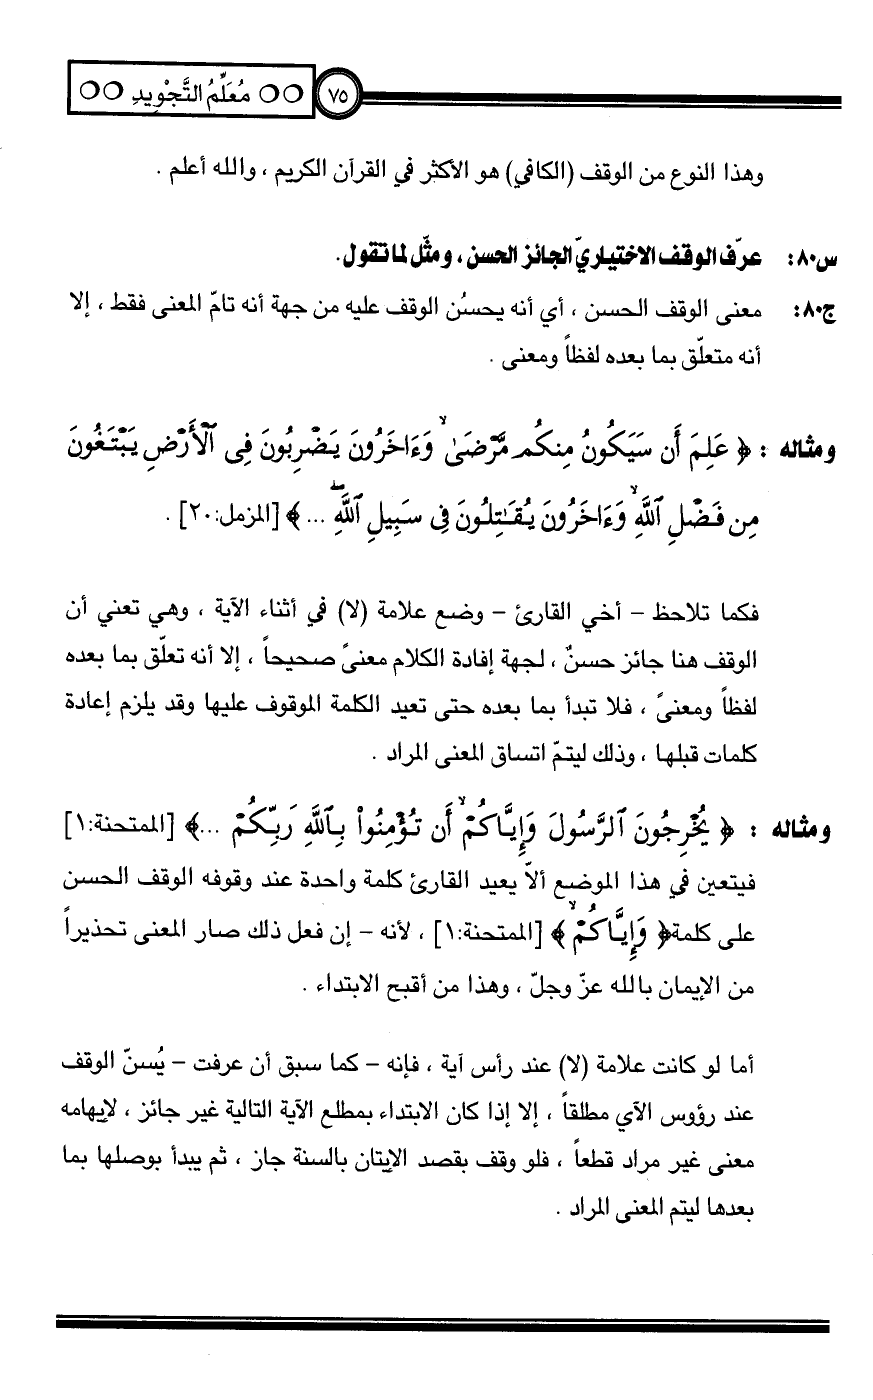 ○○ مُعَلِّمُ التَّجْوِيدِ ○○ ٧٥
وهذا النوع من الوقف (الكافي) هو الأكثر في القرآن الكريم ، والله أعلم .
س٨٠: عرّف الوقف الاختياريّ الجائز الحسن ، ومثّل لما تقول.
ج٨٠: معنى الوقف الحسن ، أي أنه يحسُن الوقف عليه من جهة أنه تامّ المعنى فقط ، إلا
أنه متعلّق بما بعده لفظاً ومعنى .
ومثاله : ﴿ عَلِمَ أَن سَيَكُونُ مِنكُم مَّرْضَىٰ ۙ وَءَاخَرُونَ يَضْرِبُونَ فِى ٱلْأَرْضِ يَبْتَغُونَ
مِن فَضْلِ ٱللَّهِ ۙ وَءَاخَرُونَ يُقَـٰتِلُونَ فِى سَبِيلِ ٱللَّهِ ۖ ... ﴾ [المزمل:٢٠] .
فكما تلاحظ – أخي القارئ – وضع علامة (لا) في أثناء الآية ، وهي تعني أن
الوقف هنا جائز حسنٌ ، لجهة إفادة الكلام معنىً صحيحاً ، إلا أنه تعلّق بما بعده
لفظاً ومعنىً ، فلا تبدأ بما بعده حتى تعيد الكلمة الموقوف عليها وقد يلزم إعادة
كلمات قبلها ، وذلك ليتمّ اتساق المعنى المراد .
ومثاله : ﴿ يُخْرِجُونَ ٱلرَّسُولَ وَإِيَّاكُمْ ۙ أَن تُؤْمِنُوا۟ بِٱللَّهِ رَبِّكُمْ ...﴾ [الممتحنة:١]
فيتعين في هذا الموضع ألاّ يعيد القارئ كلمة واحدة عند وقوفه الوقف الحسن
على كلمة﴿ وَإِيَّاكُمْ ۙ ﴾ [الممتحنة:١] ، لأنه – إن فعل ذلك صار المعنى تحذيراً
من الإيمان بالله عزّ وجلّ ، وهذا من أقبح الابتداء .
أما لو كانت علامة (لا) عند رأس آية ، فإنه – كما سبق أن عرفت – يُسنّ الوقف
عند رؤوس الآي مطلقاً ، إلا إذا كان الابتداء بمطلع الآية التالية غير جائز ، لإيهامه
معنى غير مراد قطعاً ، فلو وقف بقصد الإيتان بالسنة جاز ، ثم يبدأ بوصلها بما
بعدها ليتم المعنى المراد .